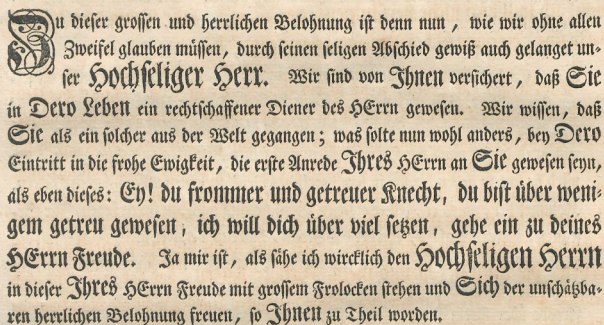 Zu dieser grossen und herrlichen Belohnung ist denn nun, wie wir ohne allen
Zweifel glauben müssen, durch seinen seligen Abschied gewiß auch gelanget un-
ser Hochseliger Herr. Wir sind von Jhnen versichert, daß Sie
in Dero Leben ein rechtschaffener Diener des HErrn gewesen. Wir wissen, daß
Sie als ein solcher aus der Welt gegangen; was solte nun wohl anders, bey Dero
Eintritt in die frohe Ewigkeit, die erste Anrede Jhres HErrn an Sie gewesen seyn,
als eben dieses: Ey! du frommer und getreuer Knecht, du bist über weni-
gem getreu gewesen, ich will dich über viel setzen, gehe ein zu deines
HErrn Freude. Ja mir ist, als sähe ich wircklich den Hochseligen Herrn
in dieser Jhres HErrn Freude mit grossem Frolocken stehen und Sich der unschätzba-
ren herrlichen Belohnung freuen, so Jhnen zu Theil worden.